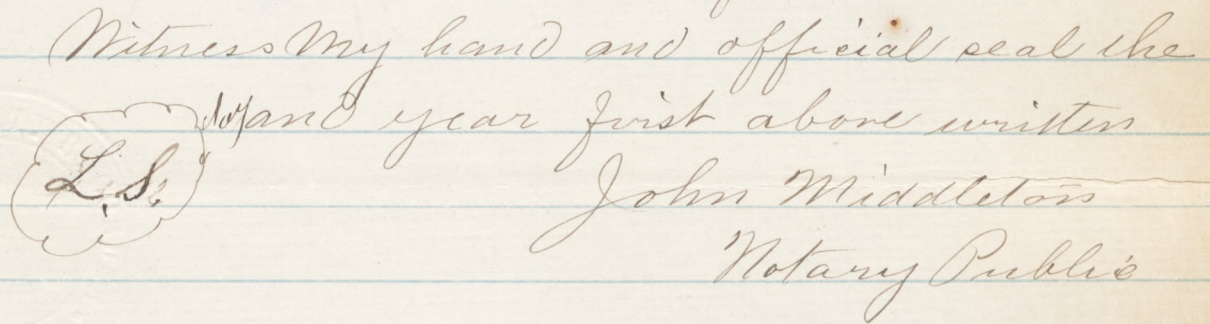 Witness My hand and official seal the
day and year first above written
L.S.
John Middleton
Notary Public